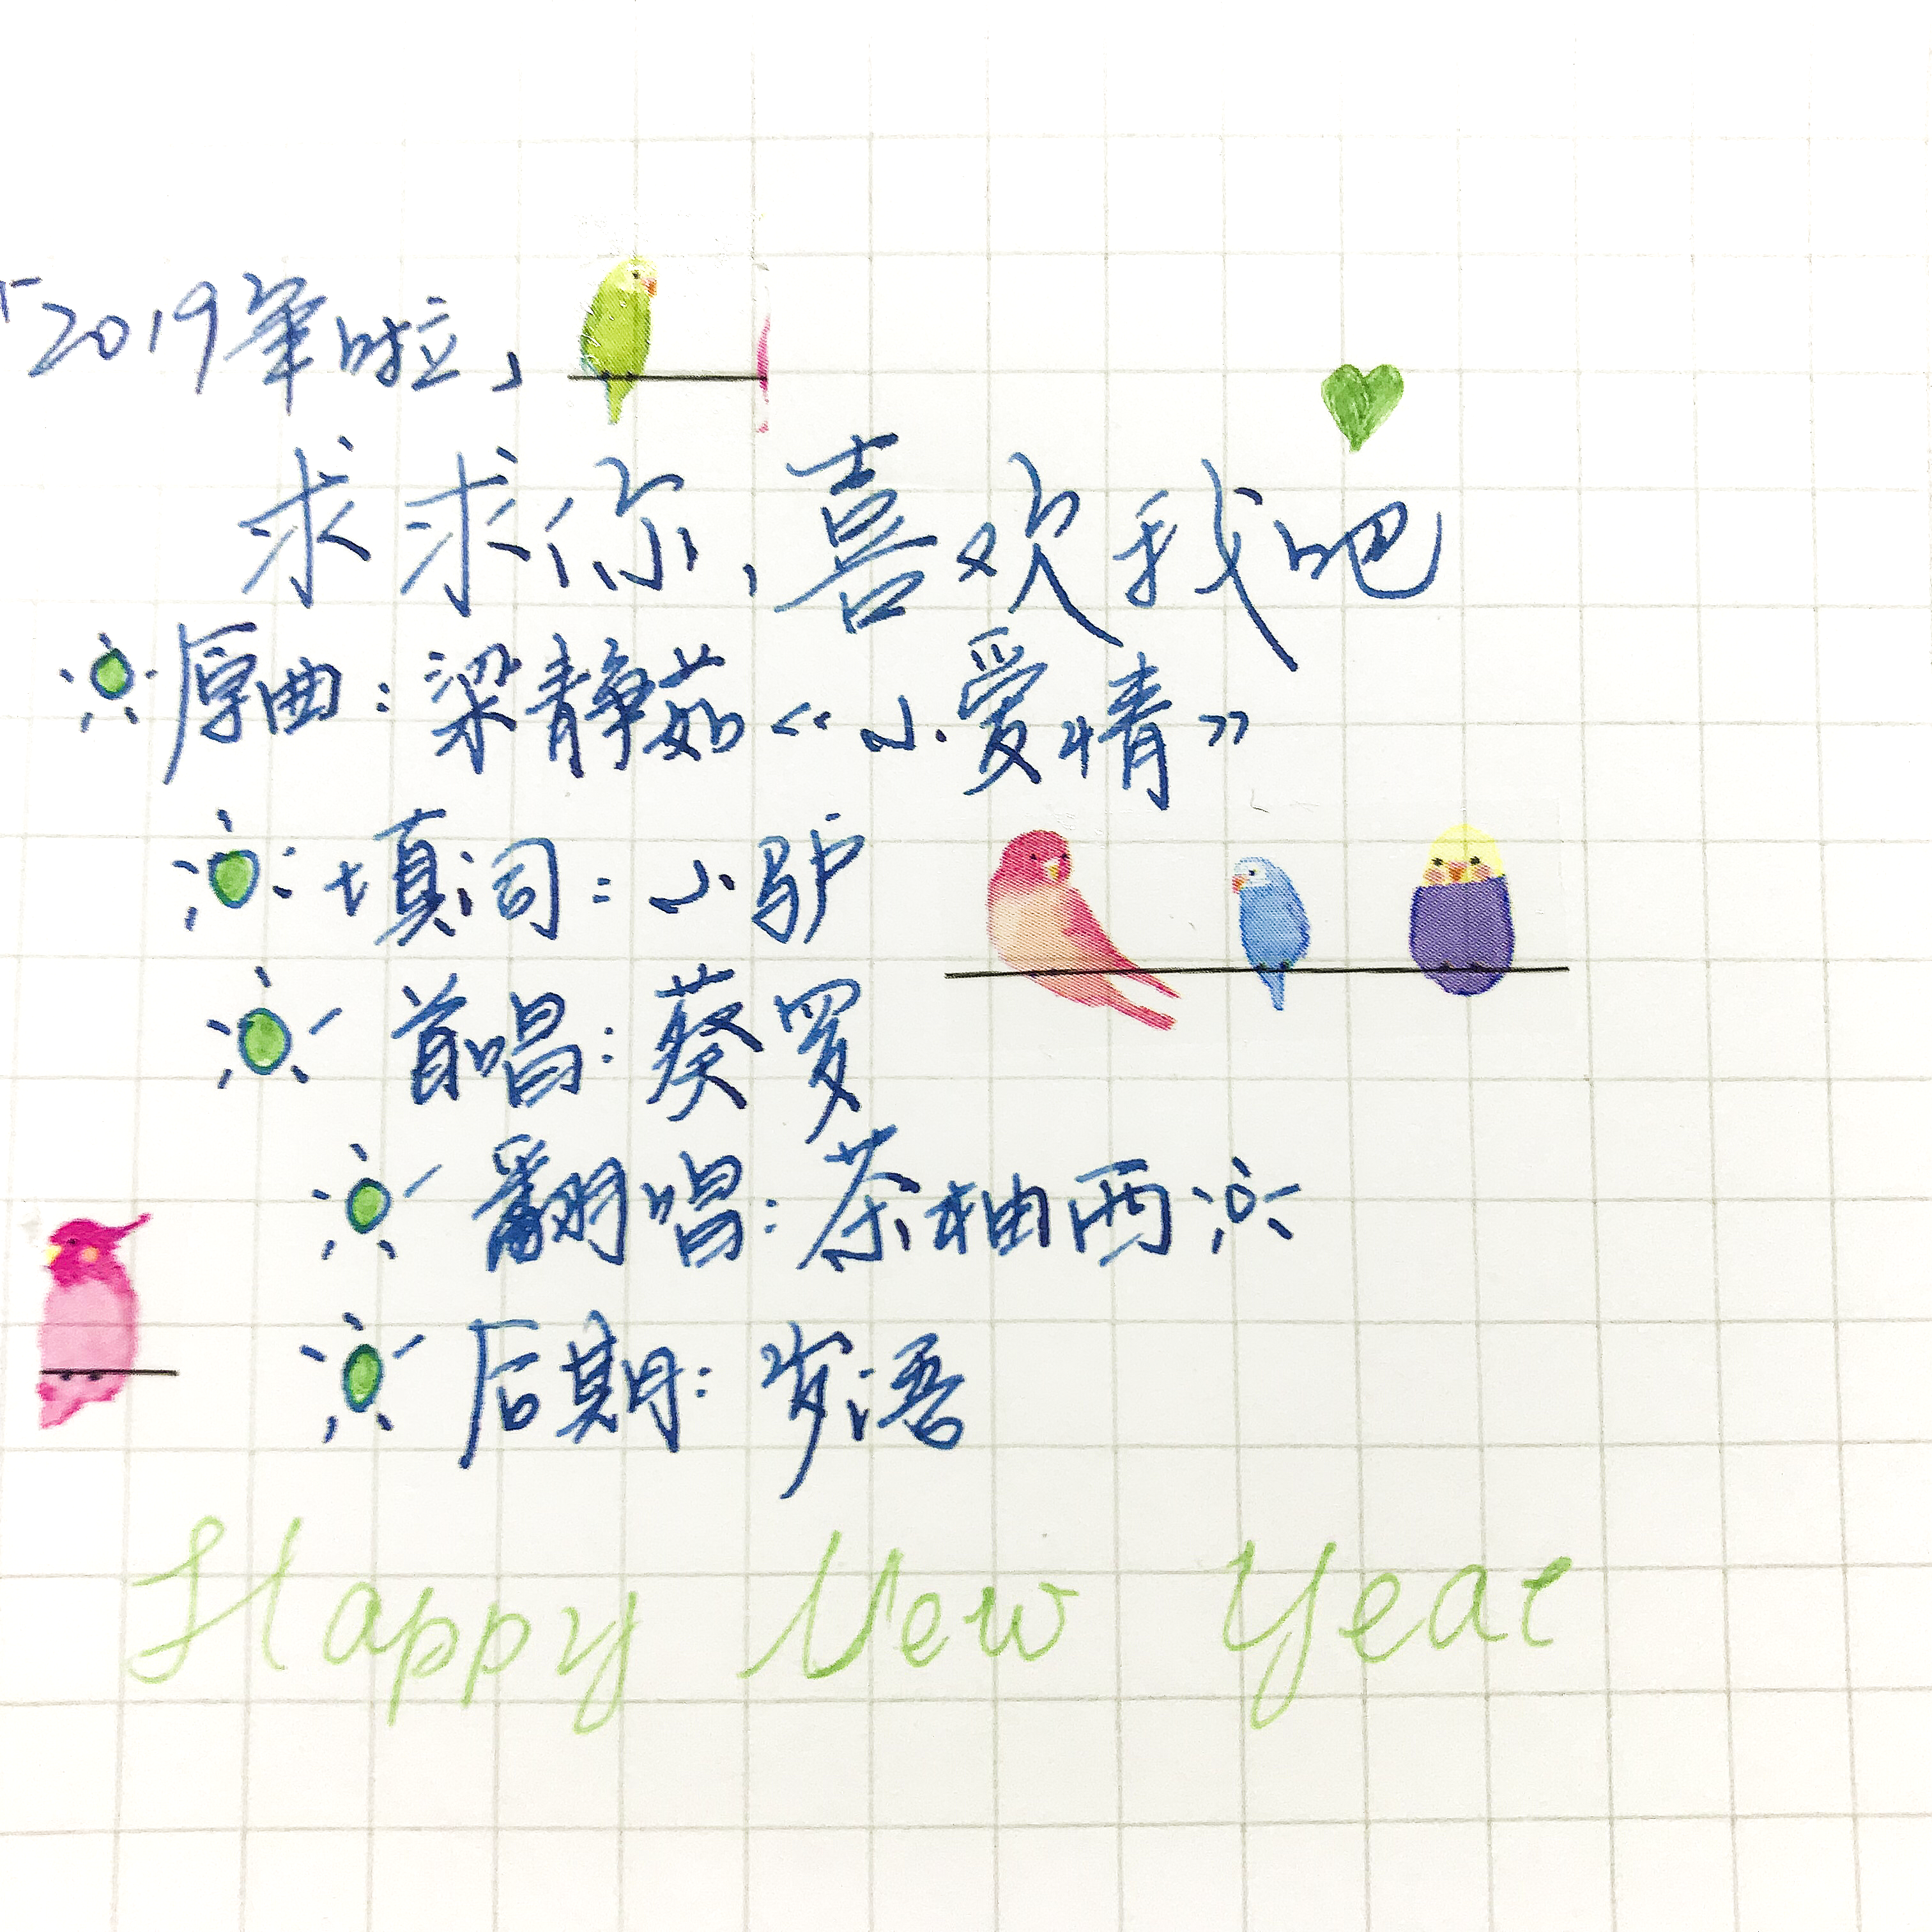 「2019年啦」
求求你,喜欢我吧
原曲:梁静茹《小爱情》
填词:小驴
首唱:蔡罗
翻唱:茶柚西
后期:岁语
Happy New Year